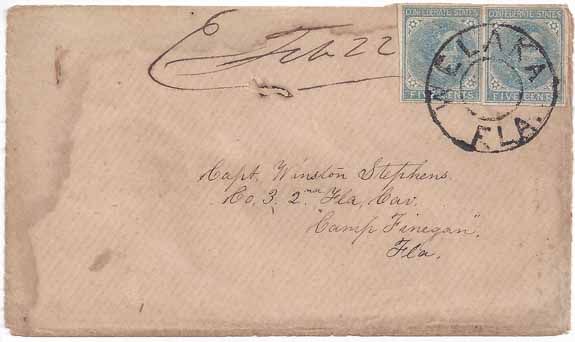 Feb 22
CONFEDERATE STATES CONFEDERATE STATES
FIVE CENTS FIVE CENTS
WELAKA
FLA.
Capt. Winston Stephens.
Co. 3. 2nd Fla, Cav.
"Camp Finegan".
Fla.